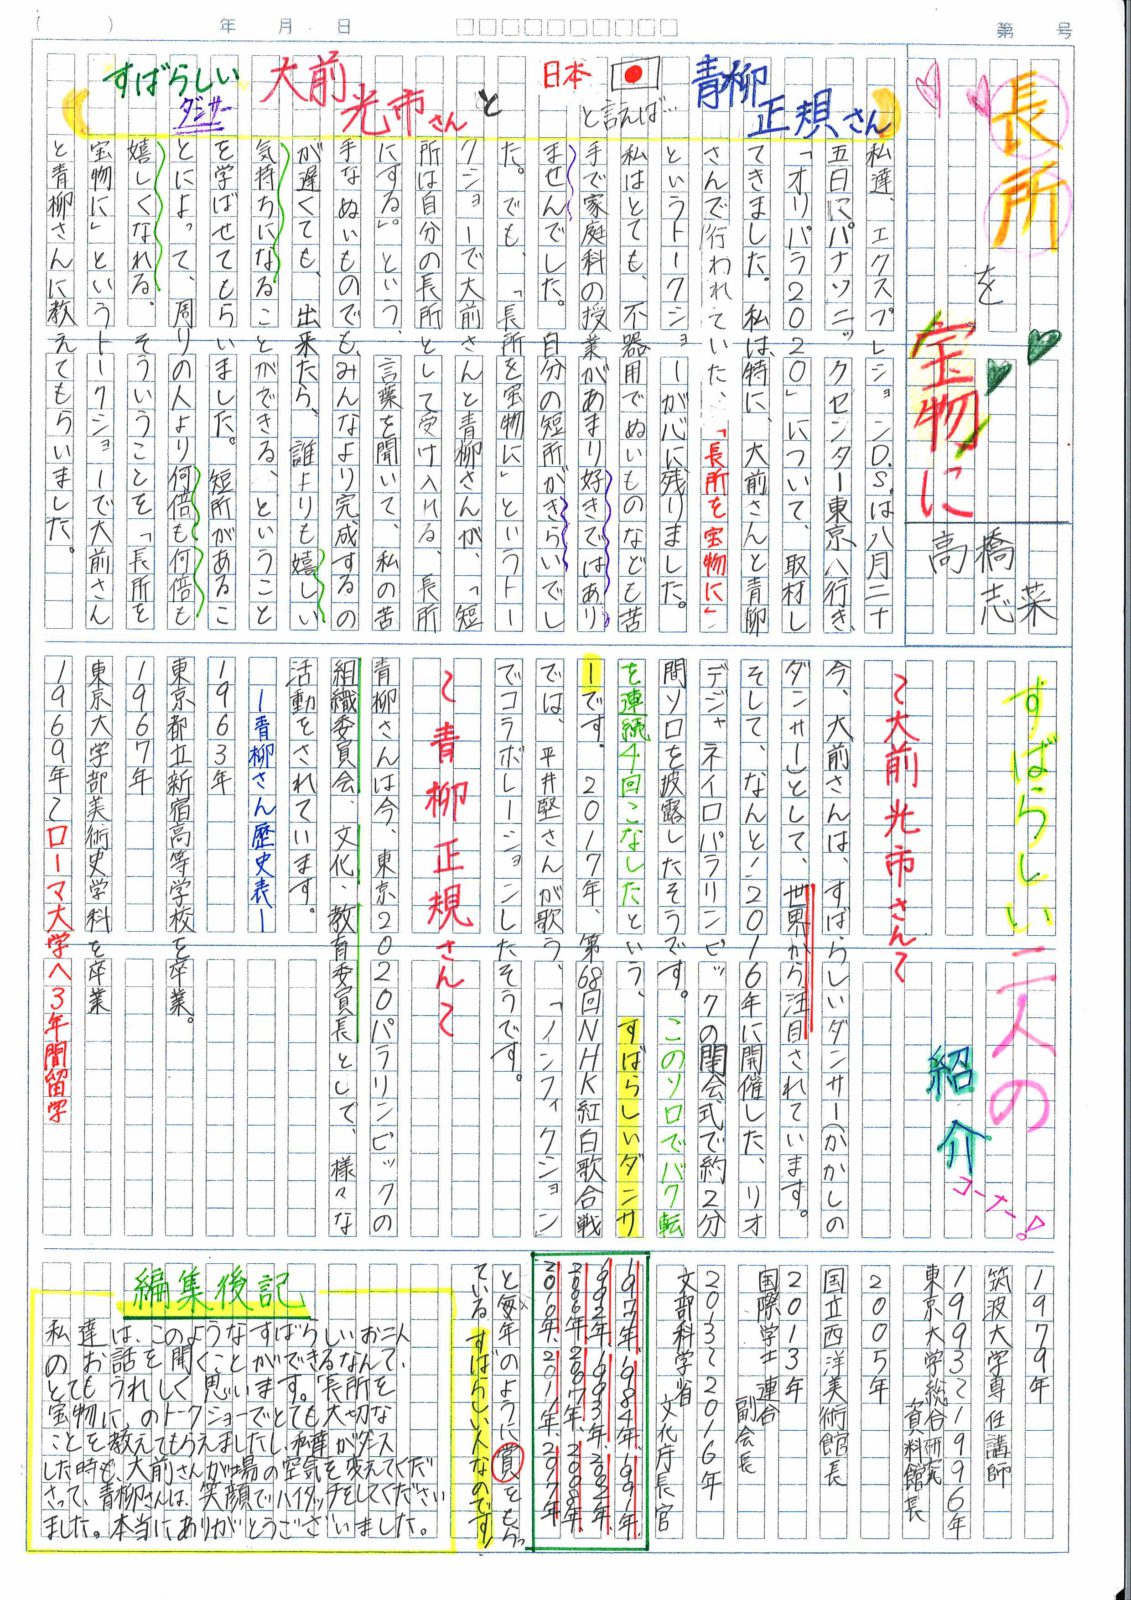 ( ) 年 月 日
第 号
長所
を
宝物に
高橋
志菜
日本
と言えば…
青柳
正規さん
と
すばらしい
ダンサー
大前
光市さん
私達、エクスプレションD.S.は八月二十
五日にパナソニックセンター東京へ行き、
「オリパラ2020」について、取材し
てきました。私は特に、大前さんと青柳
さんで行われていた、「長所を宝物に」
というトークショーが心に残りました。
私はとても、不器用でぬいものなども苦
手で家庭科の授業があまり好きではあり
ませんでした。自分の短所がきらいでし
た。でも、「長所を宝物に」というトー
クショーで大前さんと青柳さんが、「短
所は自分の長所として受け入れる、長所
にする。」という、言葉を聞いて、私の苦
手なぬいものでも、みんなより完成するの
が遅くても、出来たら、誰よりも嬉しい
気持ちになることができる、ということ
を学ばせてもらいました。短所があるこ
とによって、周りの人より何倍も何倍も
嬉しくなれる。そういうことを「長所を
宝物に」というトークショーで大前さん
と青柳さんに教えてもらいました。
すばらしい二人の
紹介
コーナー♪
〜大前光市さん〜
今、大前さんは、すばらしいダンサー(かかしの
ダンサー)として、世界から注目されています。
そして、なんと!2016年に開催した、リオ
デジャネイロパラリンピックの閉会式で約2分
間ソロを披露したそうです。このソロでバク転
を連続4回こなしたという、すばらしいダンサ
ーです。2017年、第68回NHK紅白歌合戦
では、平井堅さんが歌う、「ノンフィクション」
でコラボレーションしたそうです。
〜青柳正規さん〜
青柳さんは今、東京2020パラリンピックの
組織委員会、文化・教育委員長として、様々な
活動をされています。
ー青柳さん歴史表ー
1963年
東京都立新宿高等学校を卒業。
1967年
東京大学部美術史学科を卒業
1969年〜ローマ大学へ3年間留学
1979年
筑波大学専任講師
1993〜1996年
東京大学総合研究資料館長
2005年
国立西洋美術館長
2013年
国際学士連合副会長
2013〜2016年
文部科学省 文化庁長官
1977年、1984年、1991年、
1992年、1993年、2002年、
2006年、2007年、2008年、
2010年、2011年、2017年
と毎年のように賞をもらっ
ているすばらしい人なのです!
編集後記
私達は、このようなすばらしいお二人
のお話を聞くことができるなんて、
とてもうれしく思います。「長所を
宝物に」のトークショーでとても大切な
ことを教えてもらえましたし、私達がダンス
した時も、大前さんが場の空気を変えてくだ
さって、青柳さんは、笑顔でハイタッチをしてください
ました。本当にありがとうございました。